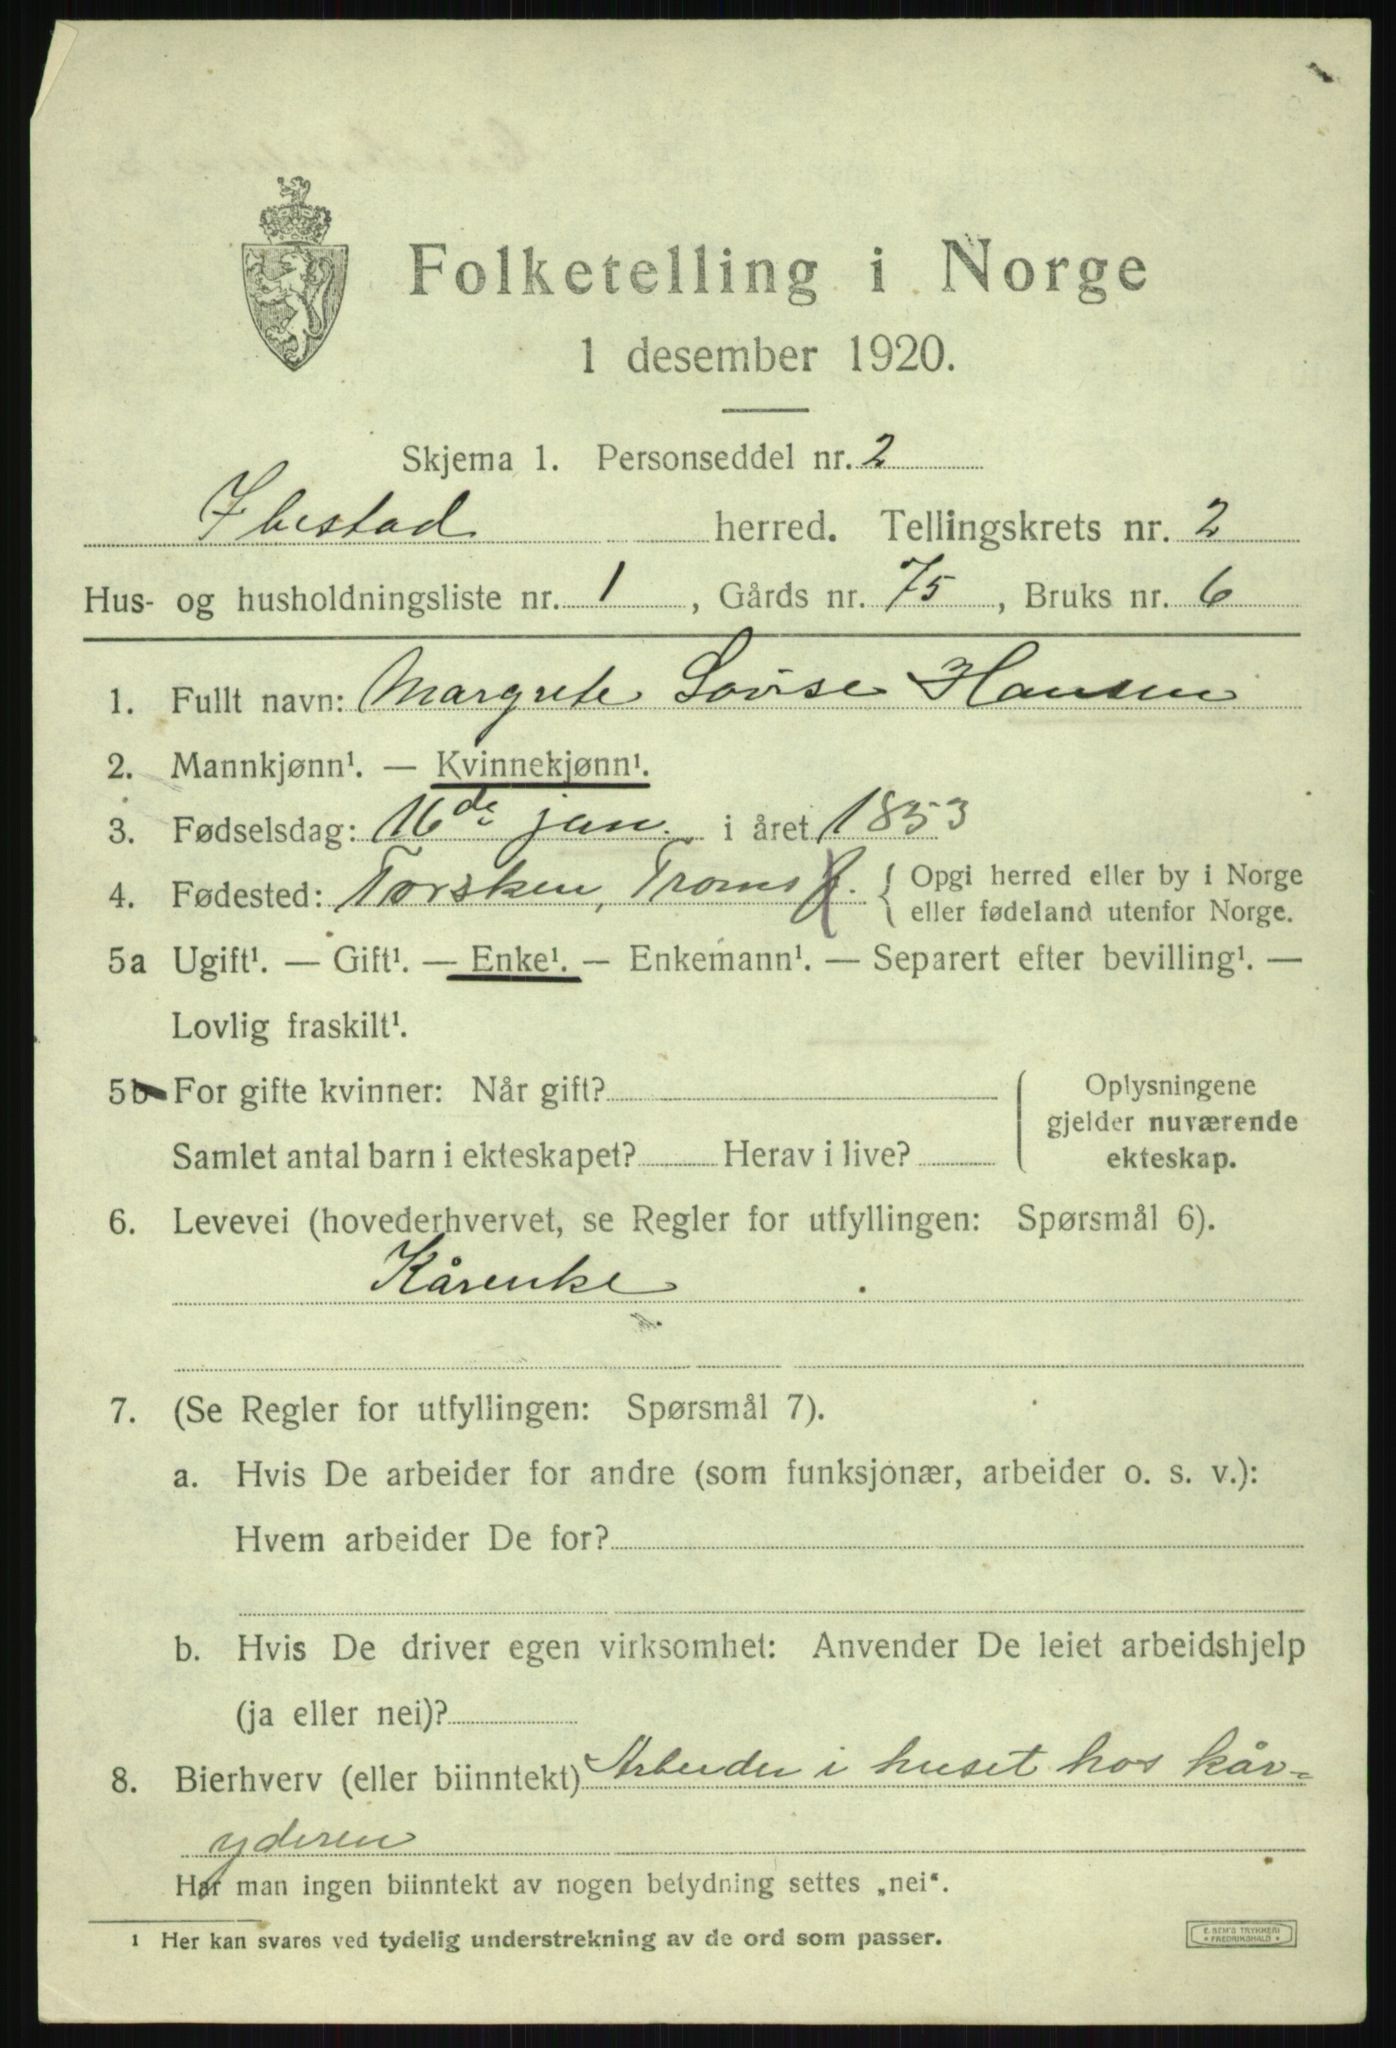 Folketelling i Norge
1 desember 1920.
Skjema 1. Personseddel nr. 2
Ibestad herred. Tellingskrets nr. 2
Hus- og husholdningsliste nr. 1, Gårds nr. 75, Bruks nr. 6
1. Fullt navn: Margrete Lovise Hansen
2. Mannkjønn¹. — Kvinnekjønn¹.
3. Fødselsdag: 16de jan. i året 1853
4. Fødested: Torsken, Troms { Opgi herred eller by i Norge
eller fødeland utenfor Norge.
5a Ugift¹. — Gift¹. — Enke¹. — Enkemann¹. — Separert efter bevilling¹. —
Lovlig fraskilt¹.
5b For gifte kvinner: Når gift?
Samlet antal barn i ekteskapet? Herav i live?
Oplysningene
gjelder nuværende
ekteskap.
6. Levevei (hovederhvervet, se Regler for utfyllingen: Spørsmål 6).
Kårenke
7. (Se Regler for utfyllingen: Spørsmål 7).
a. Hvis De arbeider for andre (som funksjonær, arbeider o. s. v.):
Hvem arbeider De for?
b. Hvis De driver egen virksomhet: Anvender De leiet arbeidshjelp
(ja eller nei)?
8. Bierhverv (eller biinntekt) Arbeider i huset hos kår-
yderen
Har man ingen biinntekt av nogen betydning settes „nei“.
1 Her kan svares ved tydelig understrekning av de ord som passer.
E. SEM'S TRYKKERI
* FREDRIKSHALD *